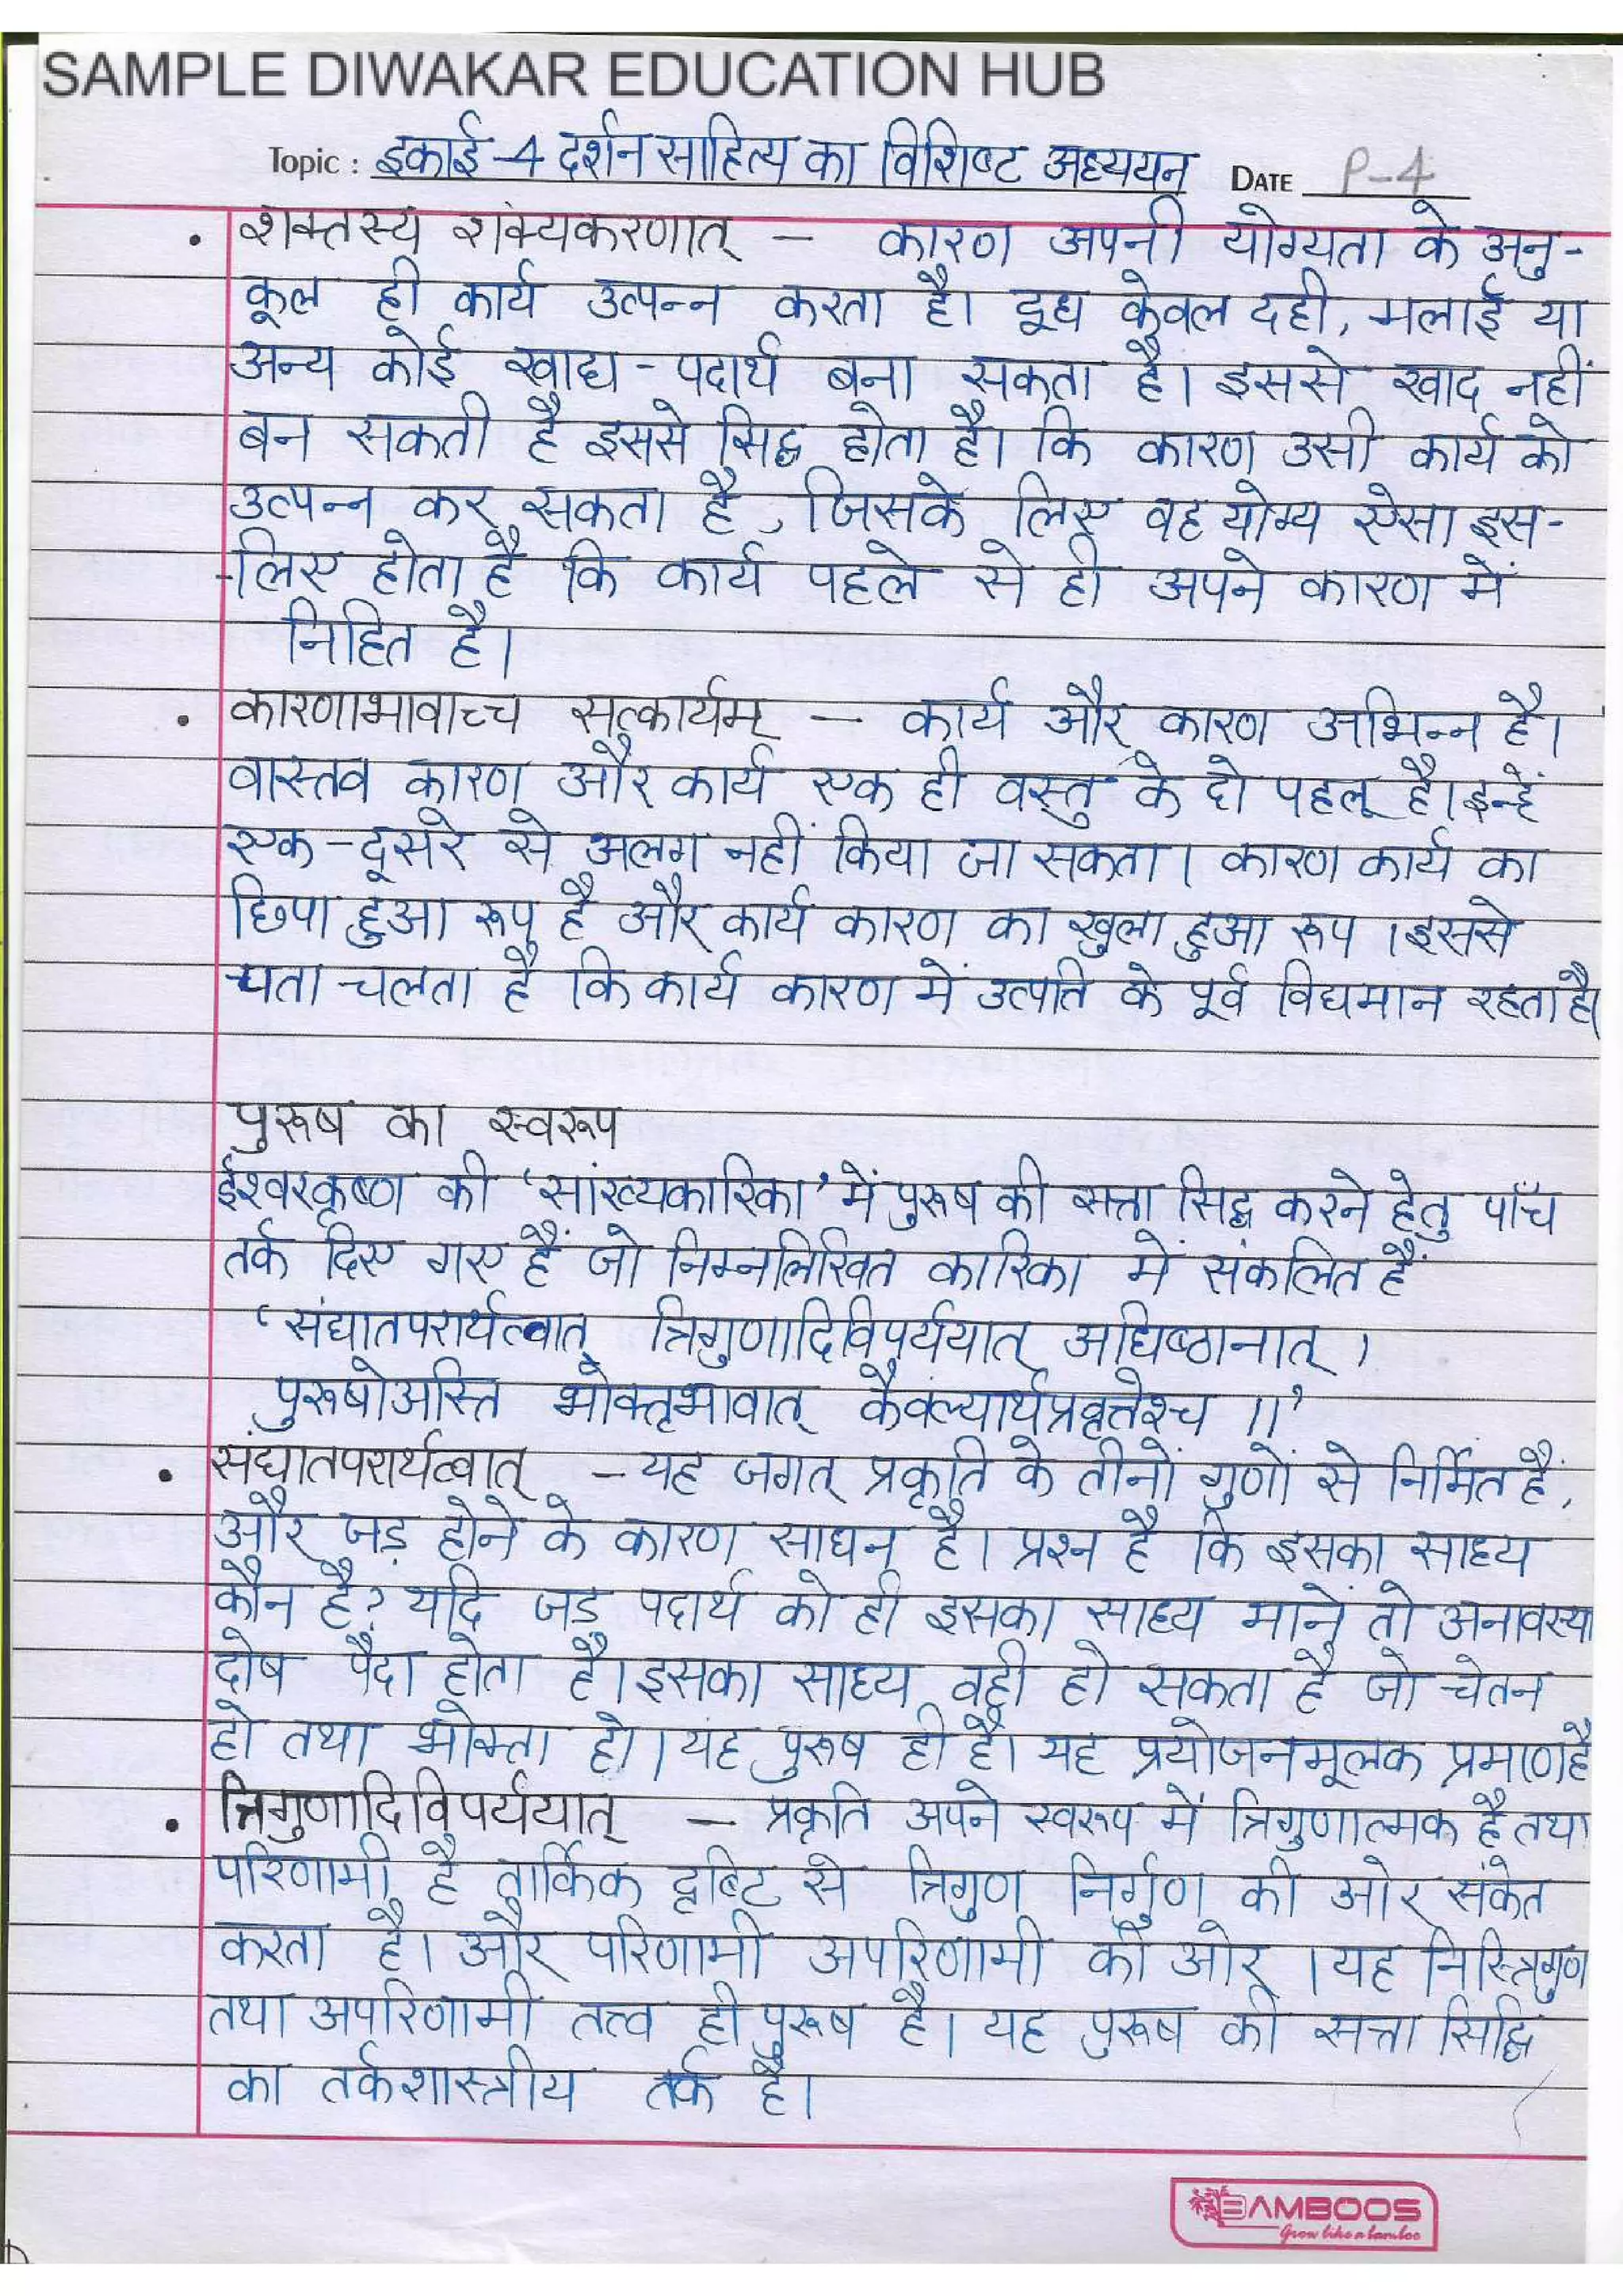 SAMPLE DIWAKAR EDUCATION HUB
Topic : इकाई-4 दर्शन साहित्य का विशिष्ट अध्ययन DATE P-4
• शक्तस्य शक्यकरणात् — कारण अपनी योग्यता के अनु-
कूल ही कार्य उत्पन्न करता है। दूध केवल दही, मलाई या
अन्य कोई खाद्य-पदार्थ बना सकता है। इससे खाद नहीं
बन सकती है इससे सिद्ध होता है। कि कारण उसी कार्य को
उत्पन्न कर सकता है, जिसके लिए वह योग्य ऐसा इस-
-लिए होता है कि कार्य पहले से ही अपने कारण में
निहित है।
• कारणाभावाच्च सत्कार्यम् — कार्य और कारण अभिन्न है।
वास्तव कारण और कार्य एक ही वस्तु के दो पहलू है। इन्हें
एक-दूसरे से अलग नहीं किया जा सकता। कारण कार्य का
छिपा हुआ रूप है और कार्य कारण का खुला हुआ रूप। इससे
पता चलता है कि कार्य कारण में उत्पति के पूर्व विद्यमान रहता है।
पुरूष का स्वरूप
ईश्वरकृष्ण की 'सांख्यकारिका' में पुरूष की सत्ता सिद्ध करने हेतु पाँच
तर्क दिए गए हैं जो निम्नलिखित कारिका में संकलित हैं
'संघातपरार्थत्वात् त्रिगुणादिविपर्ययात् अधिष्ठानात्।
पुरूषोअस्ति भोक्तृभावात् कैवल्यार्थप्रवृत्तेश्च॥'
• संघातपरार्थत्वात् — यह जगत् प्रकृति के तीनों गुणों से निर्मित है,
और जड़ होने के कारण साधन है। प्रश्न है कि इसका साध्य
कौन है? यदि जड़ पदार्थ को ही इसका साध्य माने तो अनावस्था
दोष पैदा होता है। इसका साध्य वही हो सकता है जो चेतन
हो तथा भोक्ता हो। यह पुरूष ही है। यह प्रयोजनमूलक प्रमाण है
• त्रिगुणादिविपर्ययात् — प्रकृति अपने स्वरूप में त्रिगुणात्मक है तथा
परिणामी है तार्किक दृष्टि से त्रिगुण निर्गुण की ओर संकेत
करता है। और परिणामी अपरिणामी की ओर। यह निस्त्रिगुण
तथा अपरिणामी तत्त्व ही पुरूष है। यह पुरूष की सत्ता सिद्धि
का तर्कशास्त्रीय तर्क है।
BAMBOOS
Grow like a bamboo